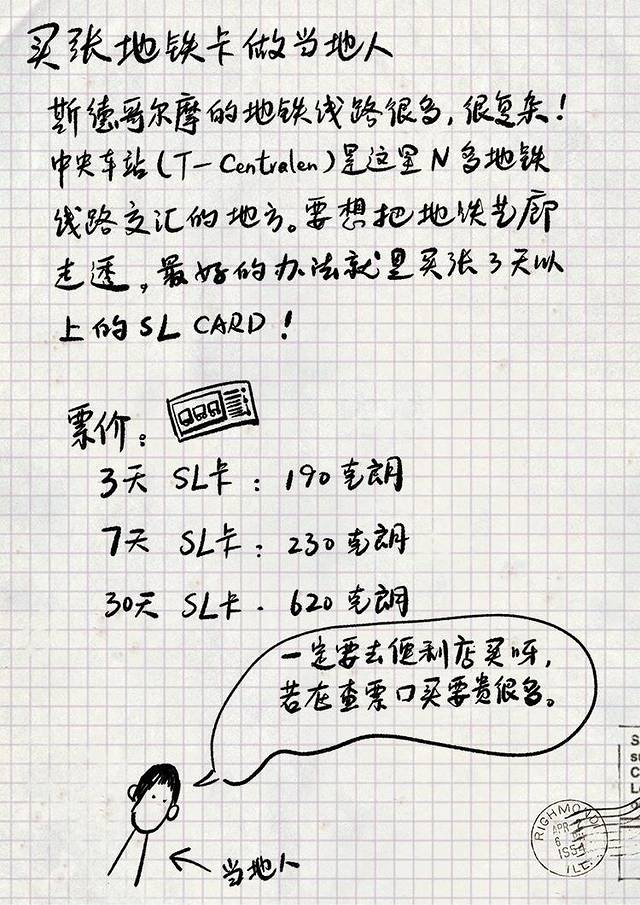 买张地铁卡做当地人
斯德哥尔摩的地铁线路很多,很复杂!
中央车站(T-Centralen)是这里N多地铁
线路交汇的地方。要想把地铁艺廊
走透,最好的办法就是买张3天以
上的SL CARD!
票价:
3天 SL卡:190克朗
7天 SL卡:230克朗
30天 SL卡.620克朗
一定要去便利店买呀,
若在查票口买要贵很多。
当地人
RICHMOND
APR
6
1954